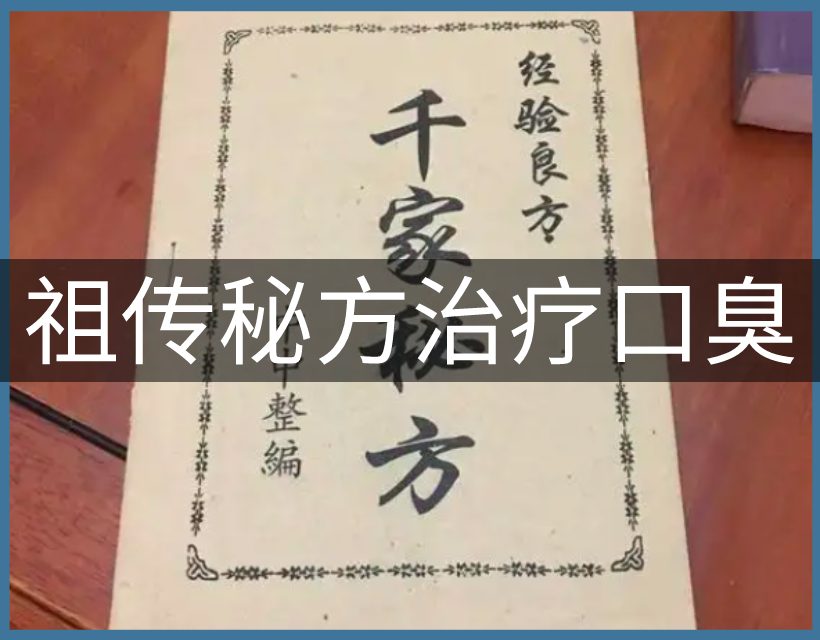 经验良方
千家秘方
祖传秘方治疗口臭
中整編